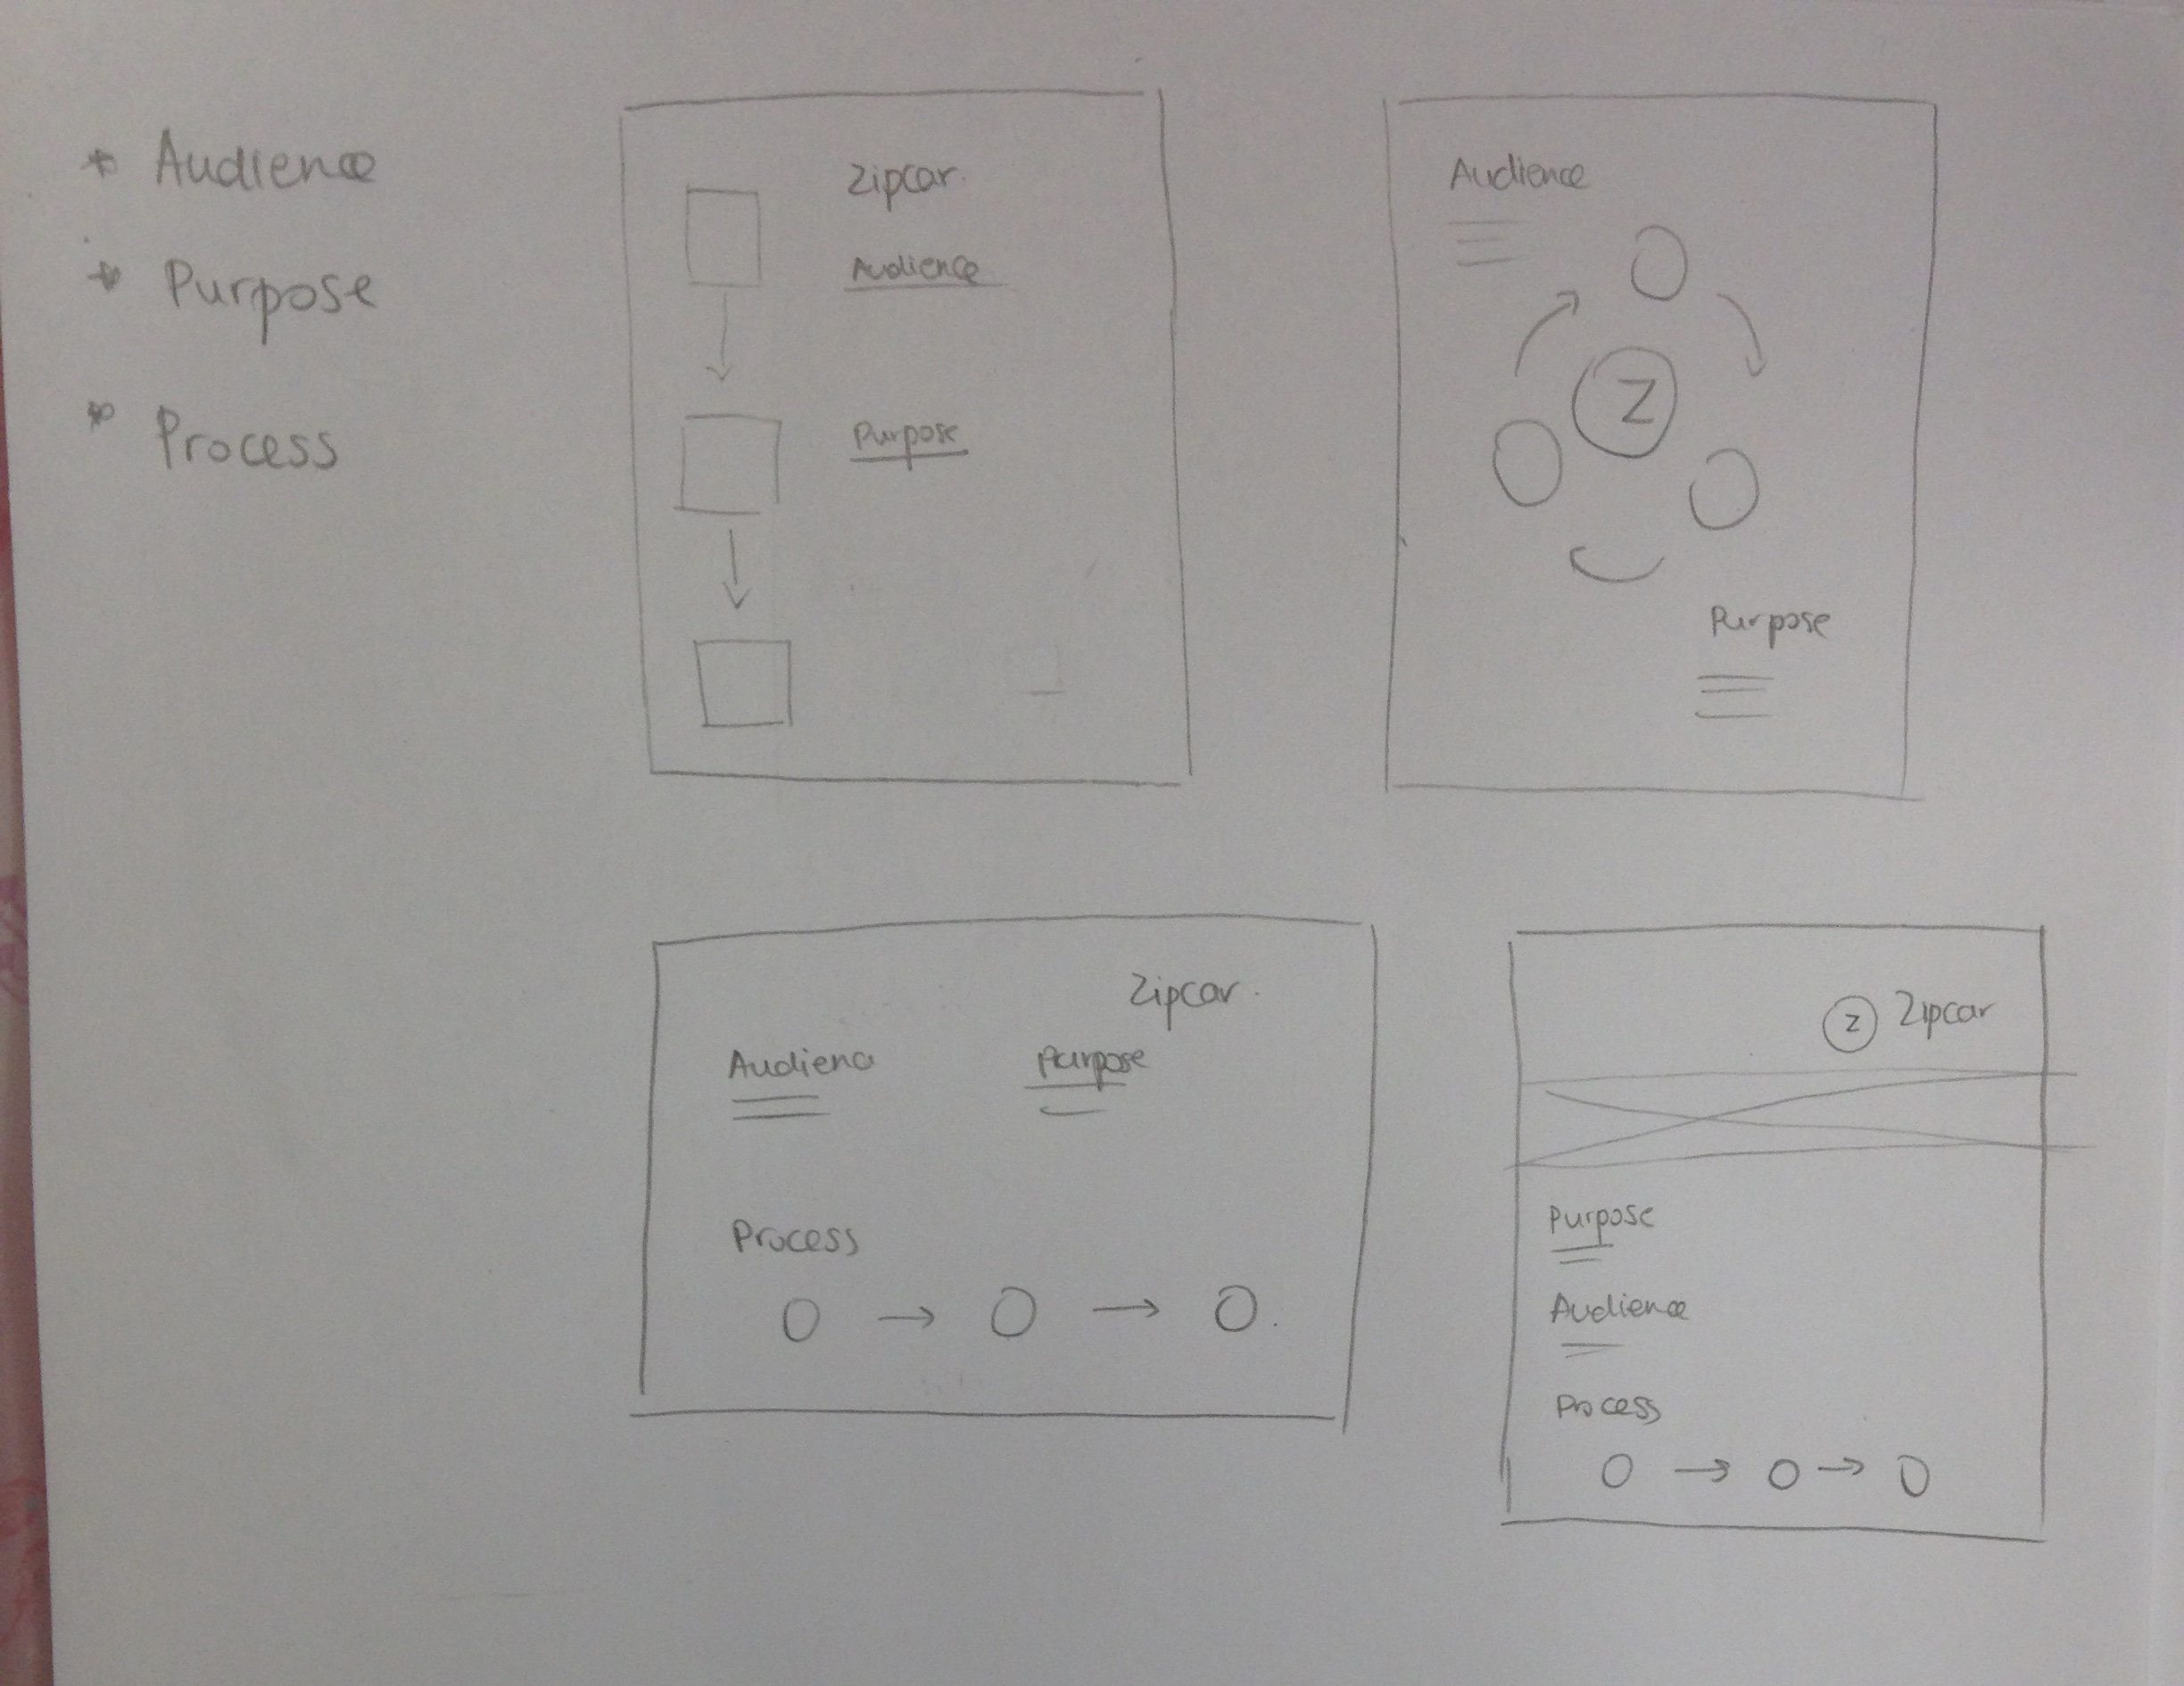 * Audience
* Purpose
* Process
Zipcar.
Audience
Purpose
Audience
Z
Purpose
Zipcar.
Audienc
Purpose
Process
Z Zipcar
Purpose
Audience
Process